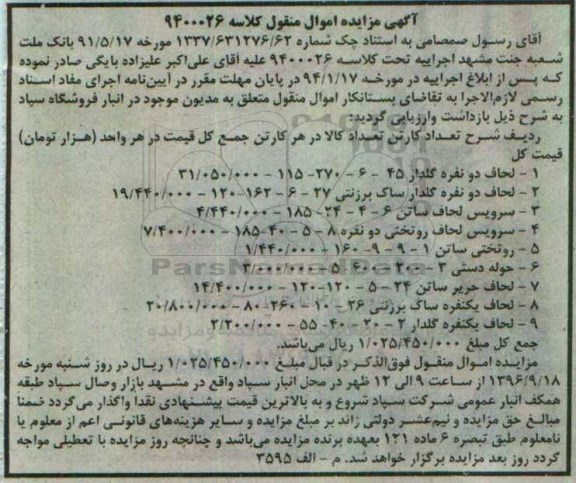 آگهی مزایده اموال منقول کلاسه ۹۴۰۰۰۲۶
آقای رسول صمصامی به استناد چک شماره ۱۳۳۷/۶۳۱۲۷۶/۶۲ مورخه ۹۱/۵/۱۷ بانک ملت
شعبه جنت مشهد اجراییه تحت کلاسه ۹۴۰۰۰۲۶ علیه آقای علی‌اکبر علیزاده بایگی صادر نموده
که پس از ابلاغ اجراییه در مورخه ۹۴/۱/۱۷ در پایان مهلت مقرر در آیین‌نامه اجرای مفاد اسناد
رسمی لازم‌الاجرا به تقاضای بستانکار اموال منقول متعلق به مدیون موجود در انبار فروشگاه سپاد
به شرح ذیل بازداشت وارزیابی گردید:
ردیف شرح تعداد کارتن تعداد کالا در هر کارتن جمع کل قیمت در هر واحد (هزار تومان)
قیمت کل
۱ - لحاف دو نفره گلدار ۴۵ - ۶ - ۲۷۰- ۱۱۵ - ۳۱/۰۵۰/۰۰۰
۲ - لحاف دو نفره گلدار ساک برزنتی ۲۷ - ۶ - ۱۶۲- ۱۲۰- ۱۹/۴۴۰/۰۰۰
۳ - سرویس لحاف ساتن ۶ - ۴ - ۲۴- ۱۸۵ - ۴/۴۴۰/۰۰۰
۴ - سرویس لحاف روتختی دو نفره ۸ - ۵ - ۴۰- ۱۸۵- ۷/۴۰۰/۰۰۰
۵ - روتختی ساتن ۱ - ۹ - ۹- ۱۶۰ - ۱/۴۴۰/۰۰۰
۶ - حوله دستی ۳ - ۲۰۰ - ۶۰۰- ۵ - ۳/۰۰۰/۰۰۰
۷ - لحاف حریر ساتن ۲۴ - ۵ - ۱۲۰- ۱۲۰ - ۱۴/۴۰۰/۰۰۰
۸ - لحاف یکنفره ساک برزنتی ۲۶ - ۱۰ - ۲۶۰- ۸۰ - ۲۰/۸۰۰/۰۰۰
۹ - لحاف یکنفره گلدار ۲ - ۲۰ - ۴۰- ۵۵ - ۲/۲۰۰/۰۰۰
جمع کل مبلغ ۱/۰۲۵/۴۵۰/۰۰۰ ریال می‌باشد.
مزایده اموال منقول فوق‌الذکر در قبال مبلغ ۱/۰۲۵/۴۵۰/۰۰۰ ریال در روز شنبه مورخه
۱۳۹۶/۹/۱۸ از ساعت ۹ الی ۱۲ ظهر در محل انبار سپاد واقع در مشهد بازار وصال سپاد طبقه
همکف انبار عمومی شرکت سپاد شروع و به بالاترین قیمت پیشنهادی نقدا واگذار می‌گردد ضمنا
مبالغ حق مزایده و نیم‌عشر دولتی زائد بر مبلغ مزایده و سایر هزینه‌های قانونی اعم از معلوم یا
نامعلوم طبق تبصره ۶ ماده ۱۲۱ بعهده برنده مزایده می‌باشد و چنانچه روز مزایده با تعطیلی مواجه
گردد روز بعد مزایده برگزار خواهد شد. م - الف ۳۵۹۵